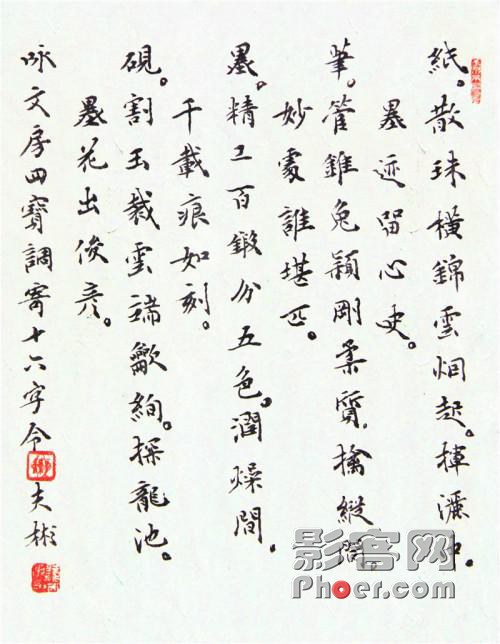 紙。散珠橫錦雲烟起。揮灑中。
墨迹留心史。
筆。管錐兔穎剛柔質，擒縱間。
妙處誰堪匹。
墨。精工百鍛分五色。潤燥間。
千載痕如刻。
硯。割玉裁雲端歙絢。探龍池。
墨花出俊彥。
咏文房四寶調寄十六字令
夫彬
影客网
Phoer.com